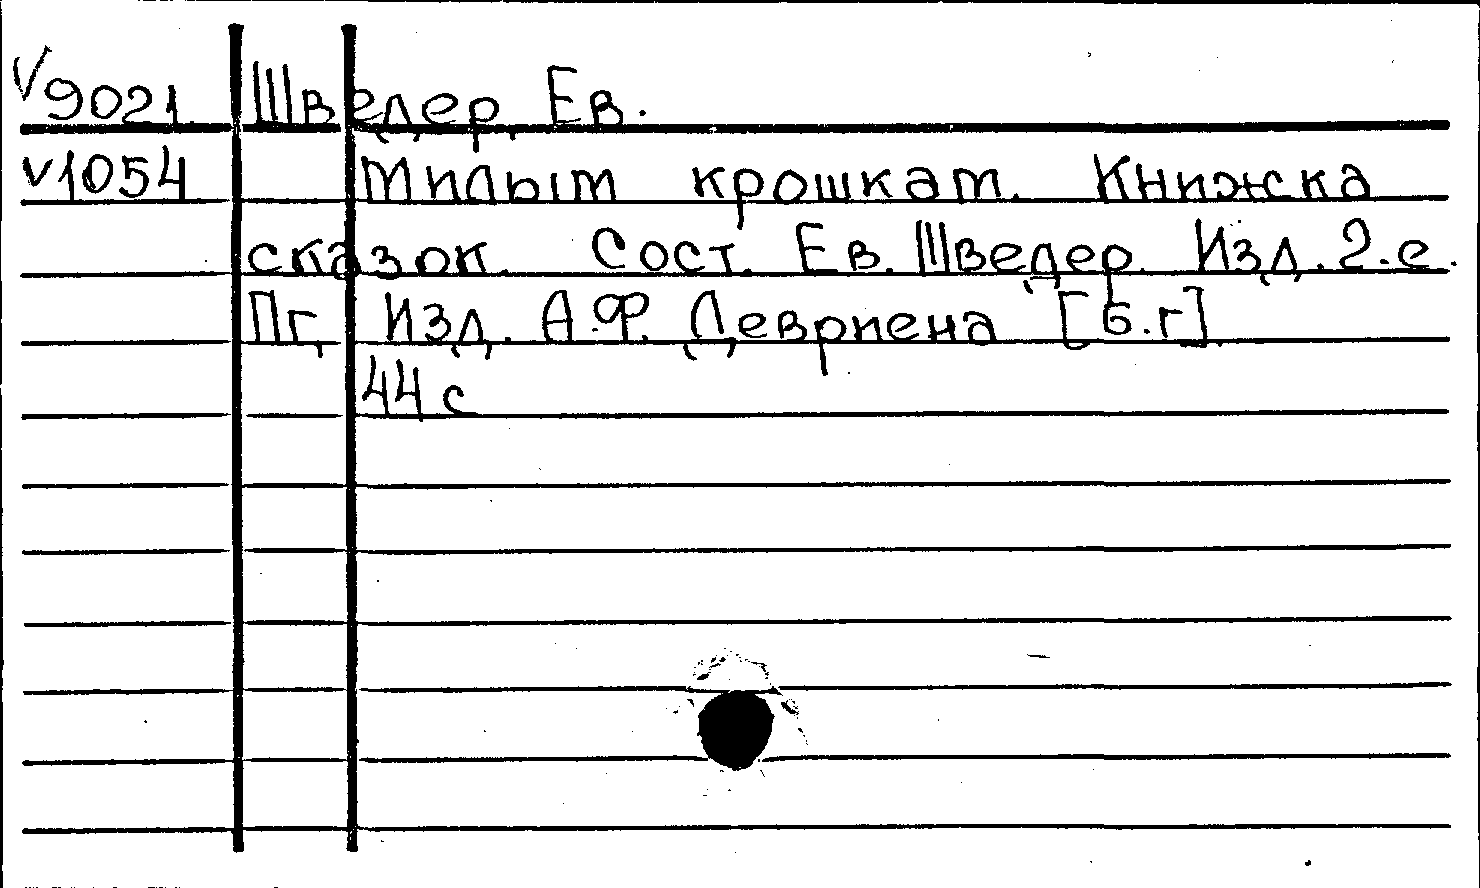 V9021 Шведер Ев.
V1054 Милым крошкам. Книжка
сказок. Сост. Ев. Шведер. Изд. 2-е.
Пг, Изд. А.Ф. Девриена [б.г]
44 с